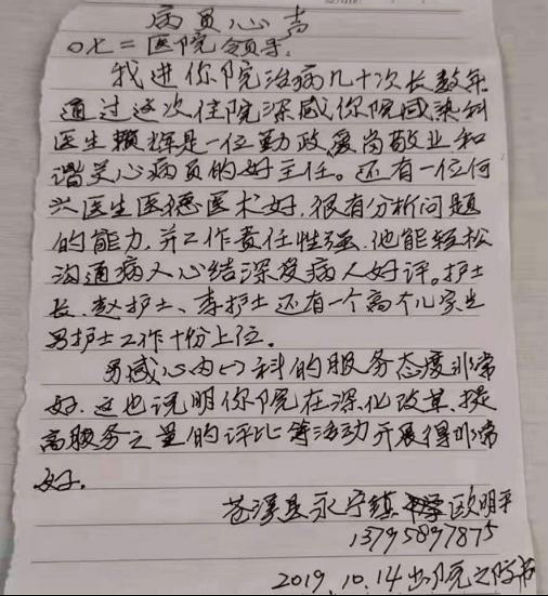 病员心声
〇七二医院领导.
我进你院治病几十次长数年
通过这次住院深感你院感染科
医生赖辉是一位勤政爱岗敬业和
谐关心病员的好主任。还有一位何
兴医生医德医术好.很有分析问题
的能力.并工作责任性强.他能轻松
沟通病人心结深受病人好评。护士
长.赵护士、李护士还有一个高个儿实生
男护士工作十份上位。
另感心内门科的服务态度非常
好.这也说明你院在深化改革.提
高服务之量的评比等活动开展得非常
好.
苍溪县永宁镇 欧明平
13795897875
2019.10.14出院之际书